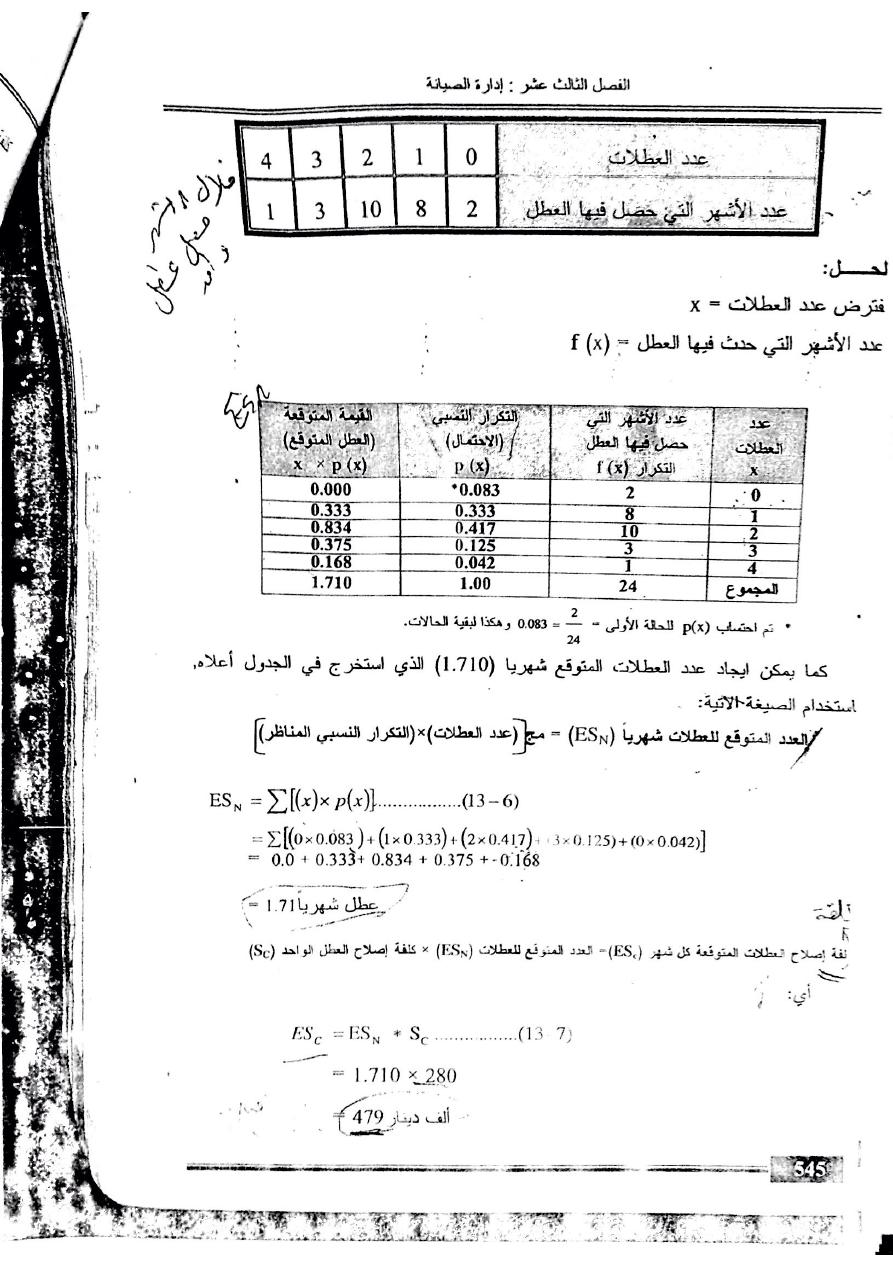 الفصل الثالث عشر : إدارة الصيانة
عدد العطلات 0 1 2 3 4
عدد الأشهر التي حصل فيها العطل 2 8 10 3 1
خلال
لحـــــل:
فترض عدد العطلات = x
عدد الأشهر التي حدث فيها العطل = f (x)
ESN
عدد العطلات x | عدد الأشهر التي حصل فيها العطل التكرار f (x) | التكرار النسبي (الاحتمال) p (x) | القيمة المتوقعة (العطل المتوقع) x × p (x)
0 2 *0.083 0.000
1 8 0.333 0.333
2 10 0.417 0.834
3 3 0.125 0.375
4 1 0.042 0.168
المجموع 24 1.00 1.710
* تم احتساب p(x) للحالة الأولى = 2/24 = 0.083 وهكذا لبقية الحالات.
كما يمكن ايجاد عدد العطلات المتوقع شهريا (1.710) الذي استخرج في الجدول أعلاه,
استخدام الصيغة الآتية:
العدد المتوقع للعطلات شهرياً (ES_N) = مج[(عدد العطلات)×(التكرار النسبي المناظر)]
ES_N = ∑[(x)× p(x)].................(13−6)
= Σ[(0×0.083 )+(1×0.333)+(2×0.417)+(3×0.125)+(0×0.042)]
= 0.0 + 0.333+ 0.834 + 0.375 + 0.168
= 1.71 عطل شهرياً
لفة إصلاح العطلات المتوقعة كل شهر (ES_c)= العدد المتوقع للعطلات (ES_N) × كلفة إصلاح العطل الواحد (S_C)
أي:
ES_C = ES_N * S_C .................(13-7)
= 1.710 × 280
= 479 ألف دينار
545